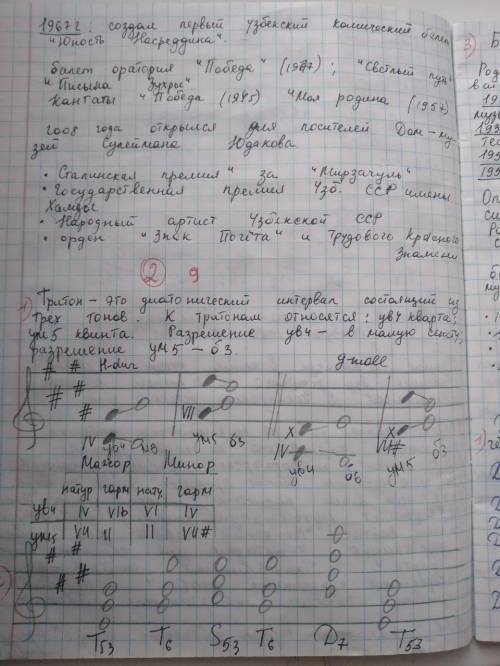 1967г. создал первый узбекский комический балет
"Юность Насреддина".
балет оратория "Победа" (1947); "Светлый путь"
"Письма Бухры"
кантаты "Победа (1945) "Моя родина (1957)
2008 года открылся для посителей Дом-му-
зей Сулеймана Юдакова
• "Сталинская премия" за "Мирзачуль"
• Государственная премия Узб. ССР имени
Хамзы
• Народный артист Узбекской ССР
• орден "Знак Почёта" и Трудового Красного
Знамени
2 9
Тритон - это диатонический интервал состоящий из
трех тонов. К тритонам относятся: ув4 кварта;
ум5 квинта. Разрешение ув4 - в малую сексту,
разрешение ум5 - б3.
# # H-dur g-moll
# #
#
VII X X
IV ув4 ум5 б3 IV ув4 б6 VII# ум5 б3
Мажор Минор
натур гарм нату. гарм
ув4 IV VIb VI IV
ум5 VII II II VII#
# #
# #
T53 T6 S53 T6 D7 T53
3)